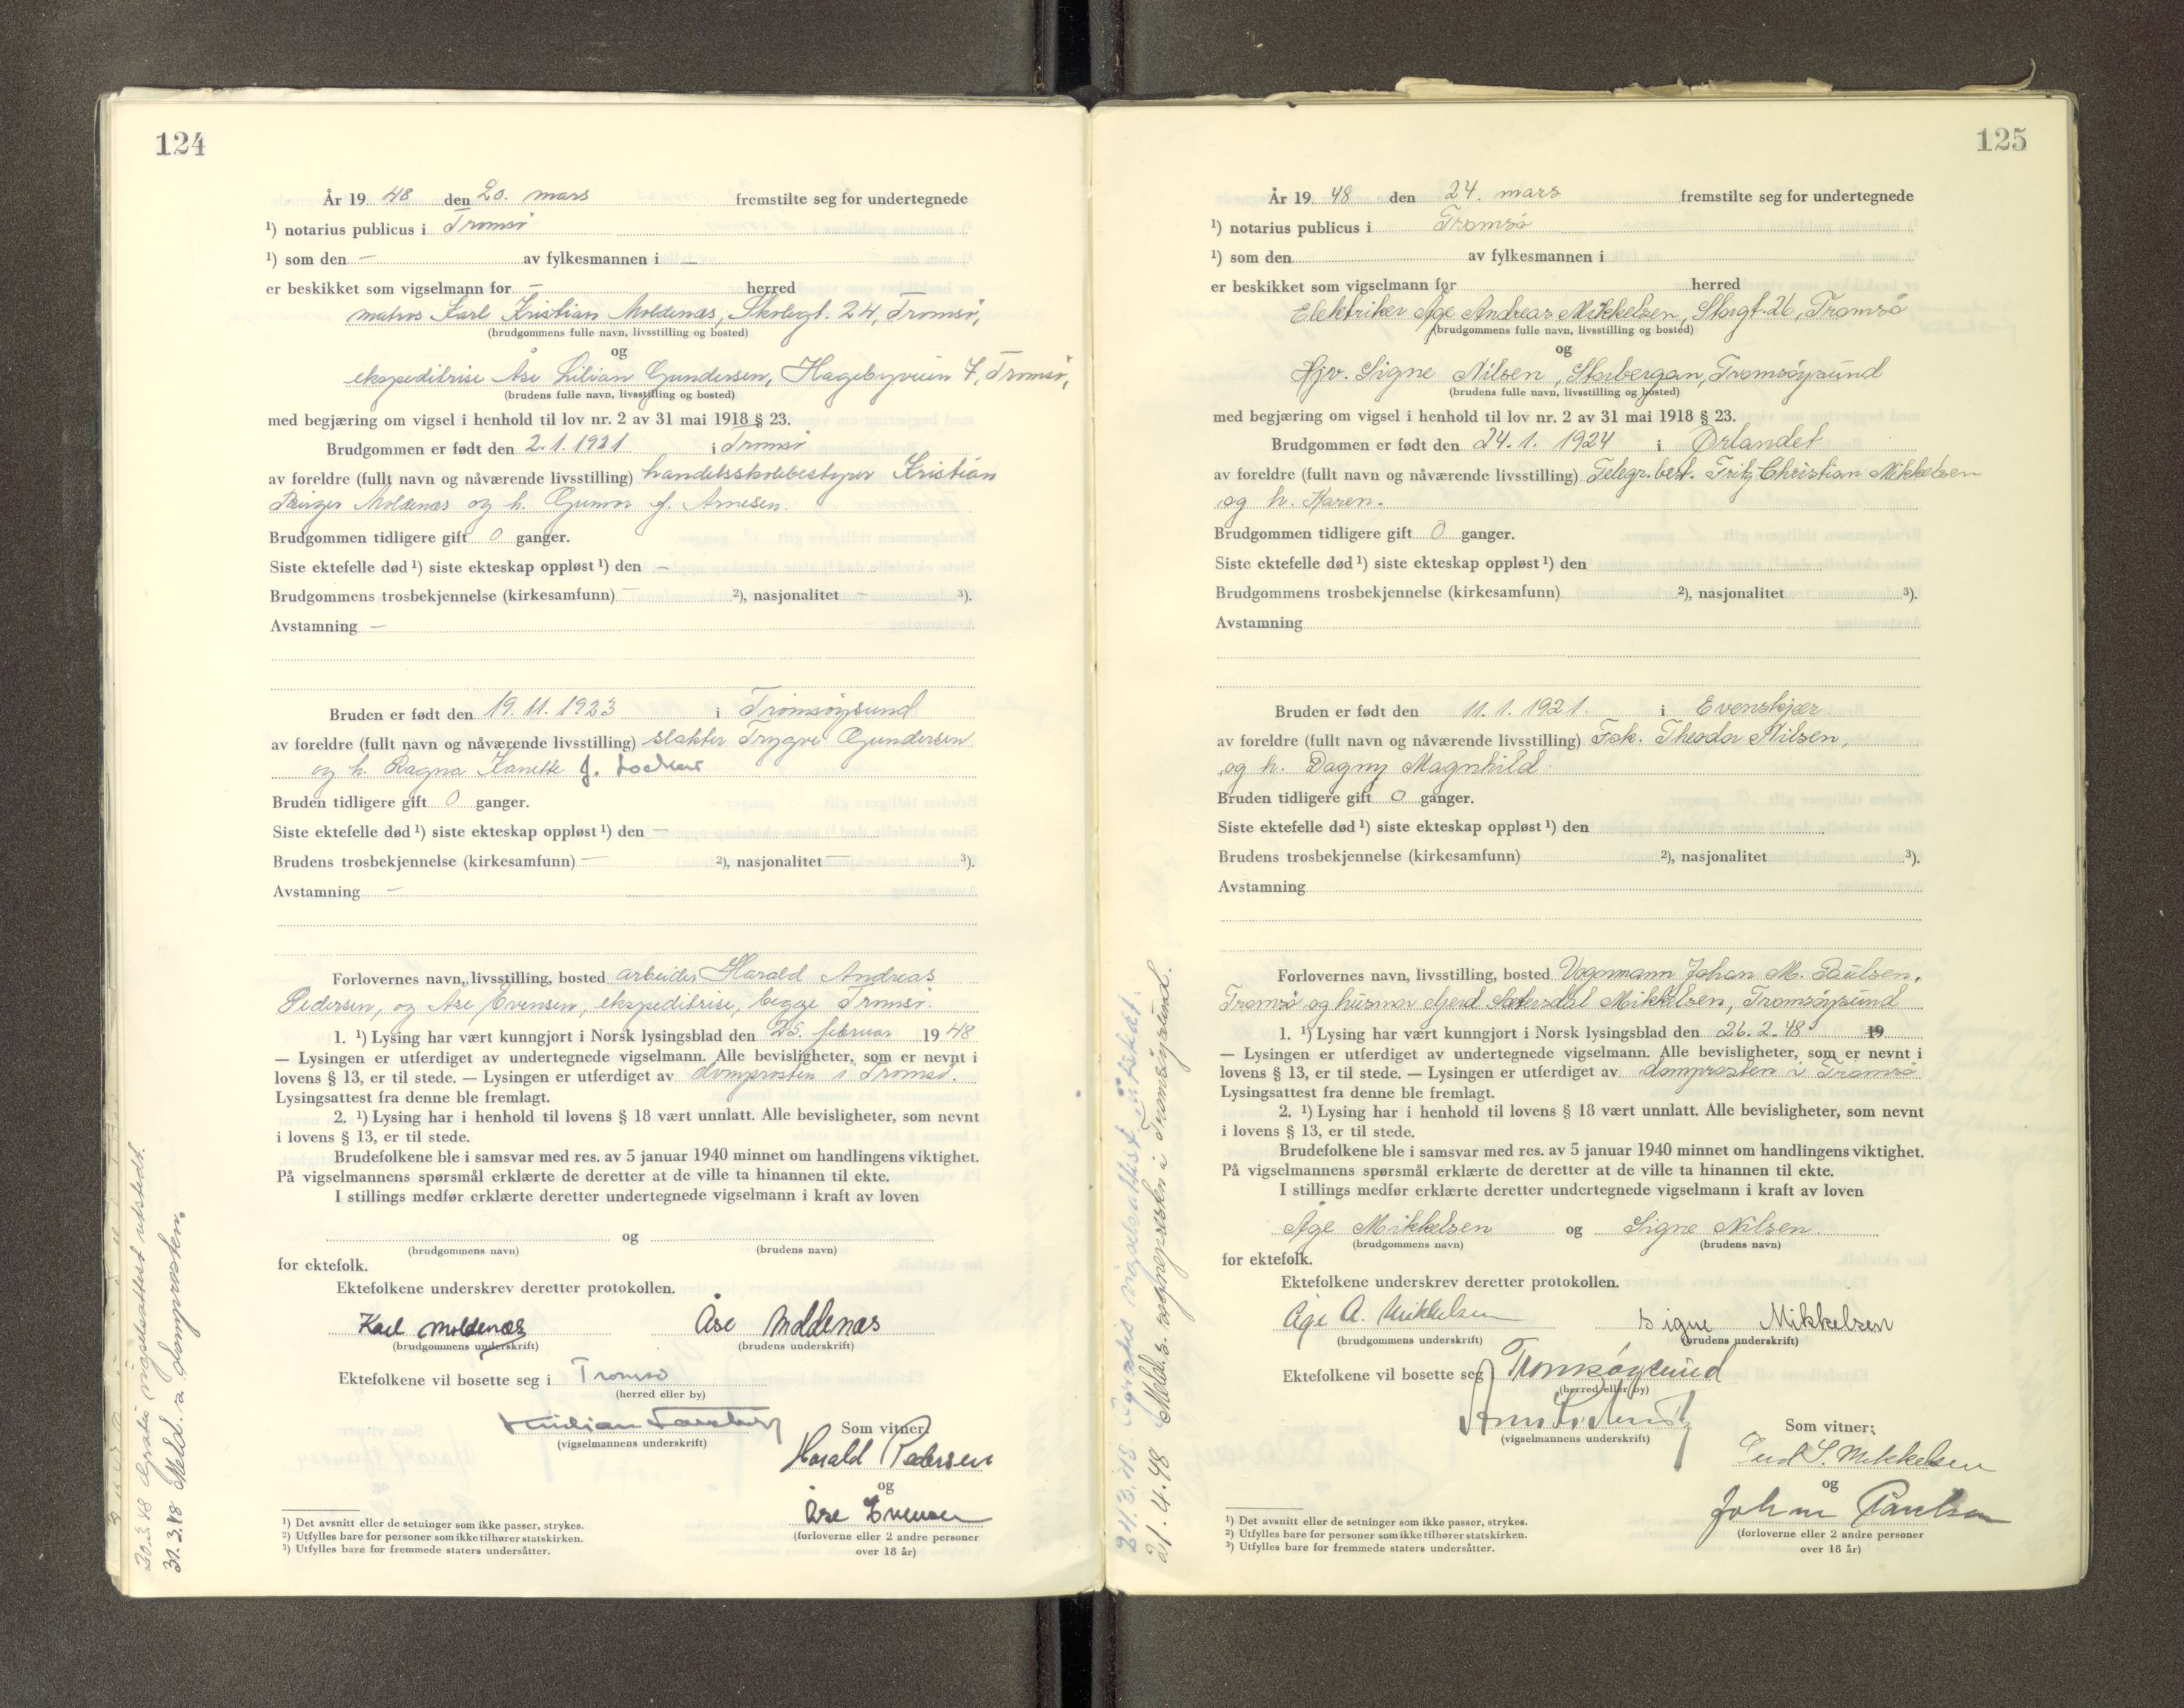 124
År 19 48 den 20. mars fremstilte seg for undertegnede
¹) notarius publicus i Tromsø
¹) som den – av fylkesmannen i –
er beskikket som vigselmann for – herred
matros Karl Kristian Moldenæs, Skolegt. 24, Tromsø,
(brudgommens fulle navn, livsstilling og bosted)
og
ekspeditrise Åse Lilian Gundersen, Hagebyveien 7, Tromsø,
(brudens fulle navn, livsstilling og bosted)
med begjæring om vigsel i henhold til lov nr. 2 av 31 mai 1918 § 23.
Brudgommen er født den 2.1.1921 i Tromsø
av foreldre (fullt navn og nåværende livsstilling) handelsskolebestyrer Kristian
Birger Moldenæs og h. Gunvor f. Arnesen.
Brudgommen tidligere gift 0 ganger.
Siste ektefelle død ¹) siste ekteskap oppløst ¹) den –
Brudgommens trosbekjennelse (kirkesamfunn) – ²), nasjonalitet – ³).
Avstamning –
Bruden er født den 19.11.1923 i Tromsøysund
av foreldre (fullt navn og nåværende livsstilling) slakter Trygve Gundersen
og h. Ragna Kanette f.
Bruden tidligere gift 0 ganger.
Siste ektefelle død ¹) siste ekteskap oppløst ¹) den –
Brudens trosbekjennelse (kirkesamfunn) – ²), nasjonalitet – ³).
Avstamning –
Forlovernes navn, livsstilling, bosted arbeider Harald Andreas
Pedersen, og Åse Evensen, ekspeditrise, begge Tromsø.
1. ¹) Lysing har vært kunngjort i Norsk lysingsblad den 25. februar 19 48
— Lysingen er utferdiget av undertegnede vigselmann. Alle bevisligheter, som er nevnt i
lovens § 13, er til stede. — Lysingen er utferdiget av domprosten i Tromsø.
Lysingsattest fra denne ble fremlagt.
2. ¹) Lysing har i henhold til lovens § 18 vært unnlatt. Alle bevisligheter, som nevnt
i lovens § 13, er til stede.
Brudefolkene ble i samsvar med res. av 5 januar 1940 minnet om handlingens viktighet.
På vigselmannens spørsmål erklærte de deretter at de ville ta hinannen til ekte.
I stillings medfør erklærte deretter undertegnede vigselmann i kraft av loven
og
(brudgommens navn) (brudens navn)
for ektefolk.
Ektefolkene underskrev deretter protokollen.
Karl Moldenæs Åse Moldenæs
(brudgommens underskrift) (brudens underskrift)
Ektefolkene vil bosette seg i Tromsø
(herred eller by)
(vigselmannens underskrift)
Som vitner:
Harald Pedersen
og
Åse Evensen
(forloverne eller 2 andre personer
over 18 år)
¹) Det avsnitt eller de setninger som ikke passer, strykes.
²) Utfylles bare for personer som ikke tilhører statskirken.
³) Utfylles bare for fremmede staters undersåtter.
20.3.48 Gratis vigselsattest utstedt.
31.3.48 Meld. s. domprosten.
125
År 19 48 den 24. mars fremstilte seg for undertegnede
¹) notarius publicus i Tromsø
¹) som den av fylkesmannen i
er beskikket som vigselmann for herred
Elektriker Åge Andreas Mikkelsen, Storgt. 26, Tromsø
(brudgommens fulle navn, livsstilling og bosted)
og
Hjv. Signe Nilsen, Storbergan, Tromsøysund
(brudens fulle navn, livsstilling og bosted)
med begjæring om vigsel i henhold til lov nr. 2 av 31 mai 1918 § 23.
Brudgommen er født den 24.1.1924 i Ørlandet
av foreldre (fullt navn og nåværende livsstilling) Telegr.best. Fritz Christian Mikkelsen
og h. Karen.
Brudgommen tidligere gift 0 ganger.
Siste ektefelle død ¹) siste ekteskap oppløst ¹) den
Brudgommens trosbekjennelse (kirkesamfunn) ²), nasjonalitet ³).
Avstamning
Bruden er født den 11.1.1921. i Evenskjær
av foreldre (fullt navn og nåværende livsstilling) Fsk. Theodor Nilsen,
og h. Dagny Magnhild.
Bruden tidligere gift 0 ganger.
Siste ektefelle død ¹) siste ekteskap oppløst ¹) den
Brudens trosbekjennelse (kirkesamfunn) ²), nasjonalitet ³).
Avstamning
Forlovernes navn, livsstilling, bosted Vognmann Johan M. Paulsen,
Tromsø og husmor Gjerd Sætersdal Mikkelsen, Tromsøysund
1. ¹) Lysing har vært kunngjort i Norsk lysingsblad den 26.2.48 19
— Lysingen er utferdiget av undertegnede vigselmann. Alle bevisligheter, som er nevnt i
lovens § 13, er til stede. — Lysingen er utferdiget av domprosten i Tromsø
Lysingsattest fra denne ble fremlagt.
2. ¹) Lysing har i henhold til lovens § 18 vært unnlatt. Alle bevisligheter, som nevnt
i lovens § 13, er til stede.
Brudefolkene ble i samsvar med res. av 5 januar 1940 minnet om handlingens viktighet.
På vigselmannens spørsmål erklærte de deretter at de ville ta hinannen til ekte.
I stillings medfør erklærte deretter undertegnede vigselmann i kraft av loven
Åge Mikkelsen og Signe Nilsen.
(brudgommens navn) (brudens navn)
for ektefolk.
Ektefolkene underskrev deretter protokollen.
Åge A. Mikkelsen Signe Mikkelsen
(brudgommens underskrift) (brudens underskrift)
Ektefolkene vil bosette seg i Tromsøysund
(herred eller by)
(vigselmannens underskrift)
Som vitner:
S. Mikkelsen
og
Johan Paulsen
(forloverne eller 2 andre personer
over 18 år)
¹) Det avsnitt eller de setninger som ikke passer, strykes.
²) Utfylles bare for personer som ikke tilhører statskirken.
³) Utfylles bare for fremmede staters undersåtter.
24.3.48. Gratis vigselsattest utstedt.
21.4.48 Meld. s. sognepresten i Tromsøysund.